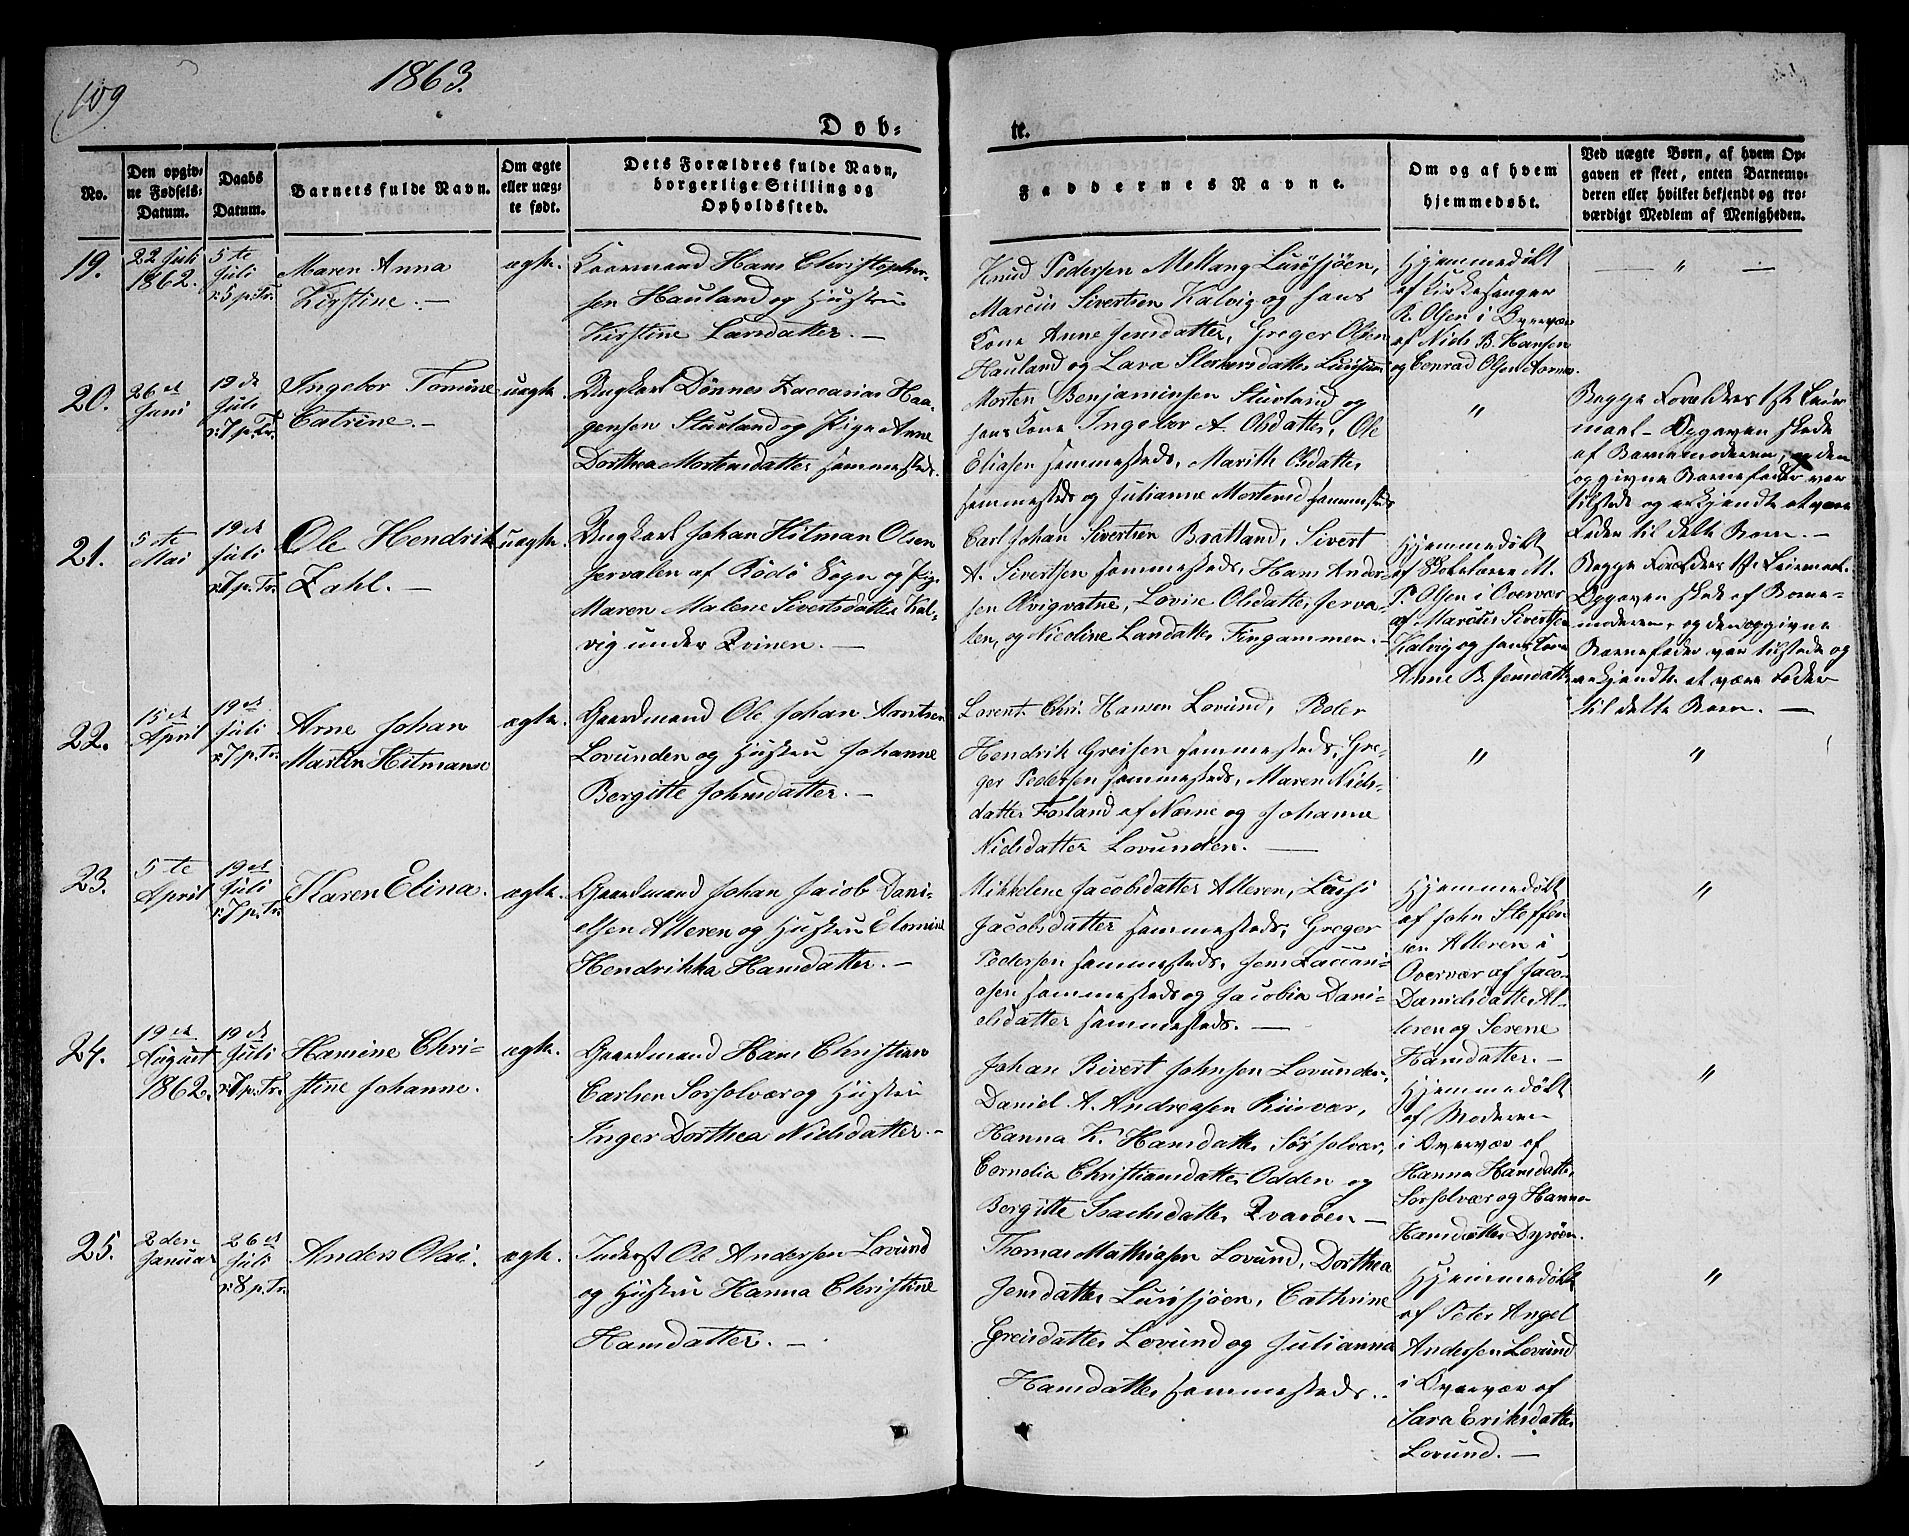 109
1863.
Døb-
te.
No.
Den opgiv-
ne Fødsels-
Datum.
Daabs
Datum.
Barnets fulde Navn.
Om ægte
eller uæg-
te født.
Dets Forældres fulde Navn,
borgerlige Stilling og
Opholdssted.
Faddernes Navne.
Om og af hvem
hjemmedøbt.
Ved uægte Børn, af hvem Op-
gaven er skeet, enten Barnemo-
deren eller hvilket bekjendt og tro-
værdigt Medlem af Menigheden.
19.
22 Juli
1862.
5te
Juli
5 p. Tr.
Maren Anna
Kirstine. —
ægte.
Hans Christopher-
sen Hauland og Hustru
Kirstine Larsdatter. —
Knud Pedersen Mellang Lurøsjøen,
Marcus Sivertsen Kalvig og hans
Kone Anne Jensdatter, Greger Olsen
Hauland og Lava
Hjemmedøbt
af Kirkesanger
R. Olsen i Overvær
af Niels B. Hansen
og Conrad Olsen
— " —
20.
26de
Juni
19de
Juli
7 p. Tr.
Ingebor Tomine
Catrine. —
uægte
Ungkarl Dønnes Zaccarias Haa-
gensen Stuvland og Pige Anne
Dorthea Mortensdatter sammesteds.
Morten Benjaminsen Stuvland og
hans Kone Ingebor A. Olsdatter, Ole
Eliasen sammesteds, Marith Olsdatter
sammesteds og Julianne Mortensd. sammesteds
"
Begge Forældres 1ste Leier-
maal - Opgaven skede
af Barnemoderen, og den
opgivne Barnefader var
tilstede og erkjendte at være
Fader til dette Barn. —
21.
5te
Mai
19de
Juli
7 p. Tr.
Ole Hendrik
Zahl. —
uægte.
Ungkarl Johan Hitman Olsen
Jervalen af Rødø Sogn og Pige
Maren Malene Sivertsdatter Kal-
vig under Qvinen. —
Carl Johan Sivertsen Bratland, Sivert
A. Sivertsen sammesteds, Hans Ander-
sen Qvigvatne, Lovise Olsdatter Jerva-
len, og Nicoline Larsdatter Fingammen. —
Hjemmedøbt
af Skolelærer M.
P. Olsen i Overvær
af Marcus Sivertsen
Kalvig og hans Kone
Anne B. Jensdatter
Begge Forældres 1ste Leiermaal.
Opgaven skede af Barne-
moderen, og den opgivne
Barnefader var tilstede og
erkjendte at være Fader
til dette Barn. —
22.
15de
April
19de
Juli
7 p. Tr.
Arne Johan
Martin Hitmann
ægte.
Gaardmand Ole Johan Arntsen
Lovunden og Hustru Johanne
Bergitte Johnsdatter. —
Lorents Chr. Hansen Lovund, Peder
Hendrik Greisen sammesteds, Gre-
ger Pedersen sammesteds, Maren Niels-
datter Forland af Næsne og Johanna
Nielsdatter Lovunden. —
"
"
23.
5te
April
19de
Juli
7 p. Tr.
Karen Elina.
ægte.
Gaardmand Johan Jacob Dani-
elsen Alteren og Hustru Elomine
Hendrikka Hansdatter. —
Mikkeline Jacobsdatter Alteren, Lussi
Jacobsdatter sammesteds, Greger
Pedersen sammesteds, Jens Zaccari-
asen sammesteds og Jacobia Dani-
elsdatter sammesteds. —
Hjemmedøbt
af John Steffen-
sen Alteren i
Overvær af Jaco-
Danielsdatter Al-
teren og Serene
Hansdatter. —
"
24.
19de
August
1862.
19de
Juli
7 p. Tr.
Hansine Chri-
stine Johanne.
ægte.
Gaardmand Hans Christian
Carlsen Sørsolvær og Hustru
Inger Dorthea Nielsdatter. —
Johan Sivert Johnsen Lovunden,
Daniel A. Andreasen Riisvær,
Hanna K. Hansdatter Sørsolvær,
Cornelia Christiansdatter Odden og
Bergitte Isachsdatter Qvarøen —
Hjemmedøbt
af Moderen
i Overvær af
Hanna Hansdatter
Sørsolvær og Hanna
Hansdatter Dyrøen.
"
25.
2den
Januar
26de
Juli
8 p. Tr.
Anders Olai.
ægte.
Inderst Ole Andersen Lovund
og Hustru Hanna Christine
Hansdatter. —
Thomas Mathiasen Lovund, Dorthea
Jensdatter Lurøsjøen, Cathrine
Greisdatter Lovund og Julianna
Hansdatter sammesteds.
Hjemmedøbt
af Peter Angel
Andersen Lovund
i Overvær af
Sara Eriksdatter
Lovund. —
"